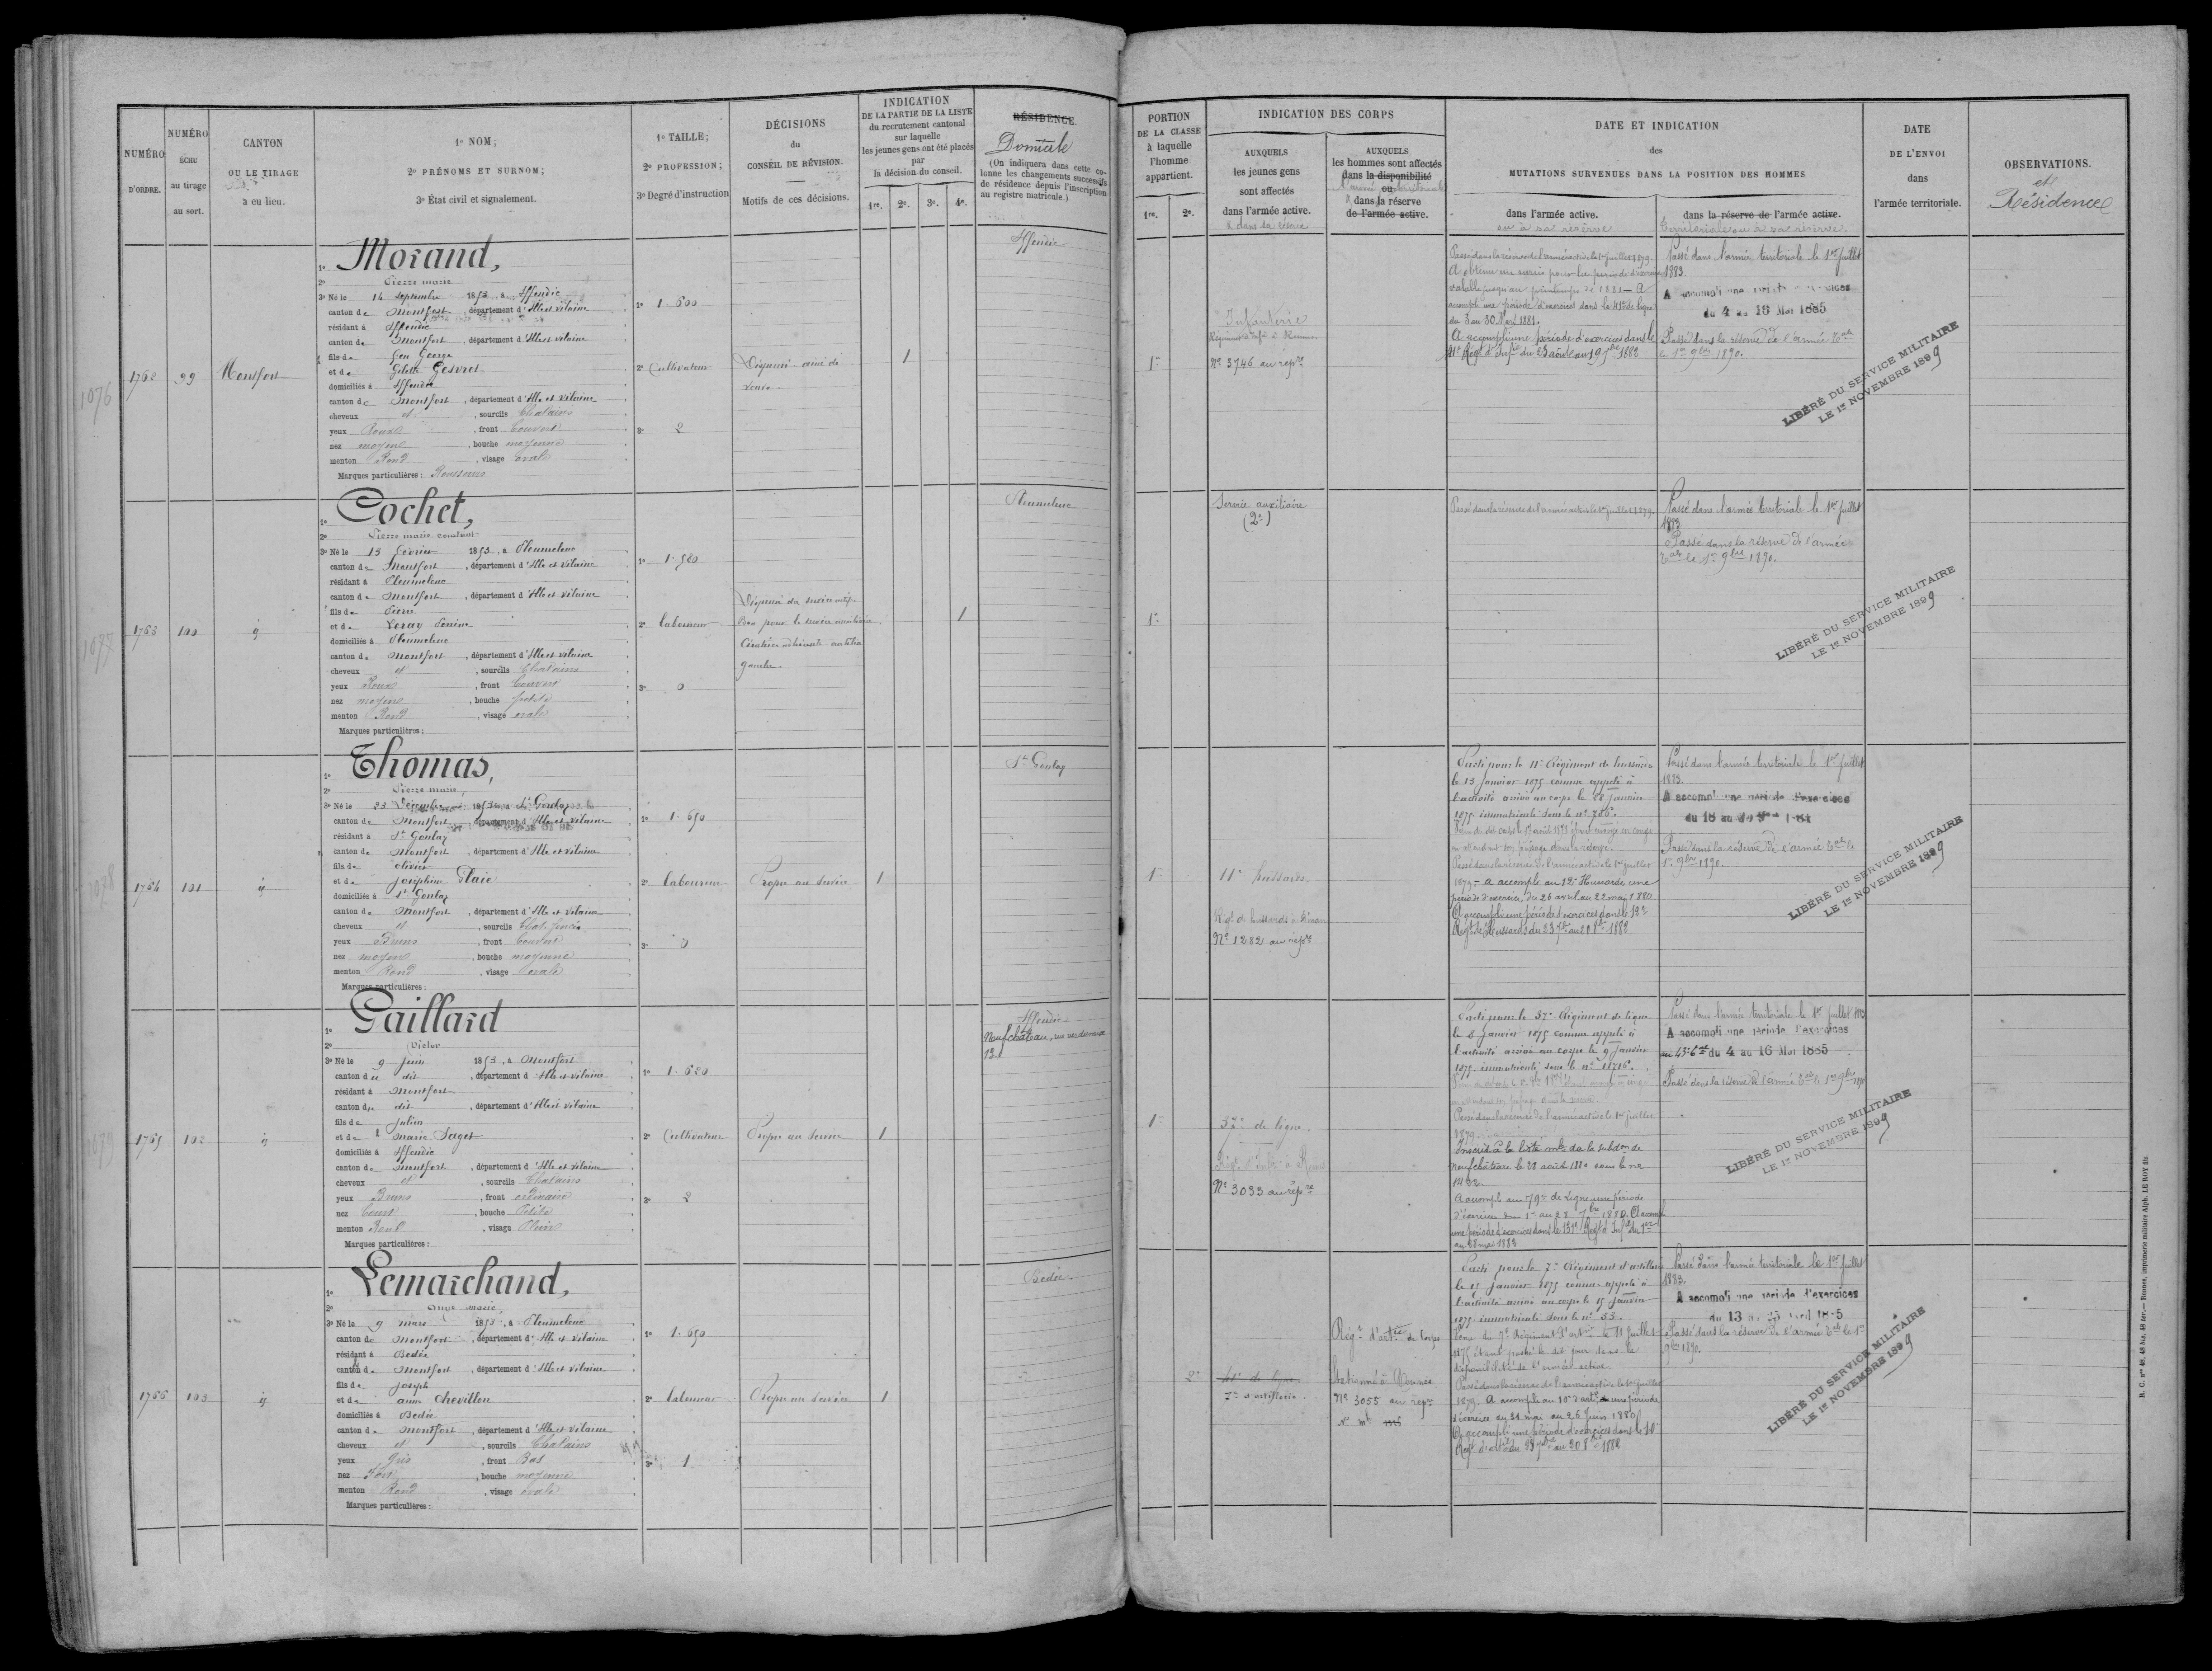 NUMÉRO D'ORDRE.
NUMÉRO ÉCHU au tirage au sort.
CANTON OU LE TIRAGE a eu lieu.
1º NOM;
2º PRÉNOMS ET SURNOM;
3º État civil et signalement.
1º TAILLE;
2º PROFESSION;
3º Degré d'instruction
DÉCISIONS
du
CONSEIL DE RÉVISION.
Motifs de ces décisions.
INDICATION
DE LA PARTIE DE LA LISTE
du recrutement cantonal
sur laquelle
les jeunes gens ont été placés
par
la décision du conseil.
1re. 2e. 3e. 4e.
RÉSIDENCE.
Domicile
(On indiquera dans cette colonne les changements successifs de résidence depuis l'inscription au registre matricule.)
1762
99
Montfort
1076
1º Morand,
2º Pierre marie
3º Né le 14 septembre 1853, à Iffendic
canton de Montfort, département d'Ille et vilaine
résidant à Iffendic
canton de Montfort, département d'Ille et vilaine
fils de feu George
et de Gilette Gesvret
domiciliés à Iffendic
canton de Montfort, département d'Ille et vilaine
cheveux et, sourcils Chatains
yeux Roux, front Couvert
nez moyen, bouche moyenne
menton Rond, visage ovale
Marques particulières: Rousseurs
1º 1.600
2º Cultivateur
3º 2
Dispensé aîné de veuve.
1
Iffendic
1763
100
id
1077
1º Cochet,
2º Pierre marie constant
3º Né le 13 février 1853, à Pleumeleuc
canton de Montfort, département d'Ille et vilaine
résidant à Pleumeleuc
canton de Montfort, département d'Ille et vilaine
fils de Pierre
et de Leray
domiciliés à Pleumeleuc
canton de Montfort, département d'Ille et vilaine
cheveux et, sourcils Chatains
yeux Roux, front Couvert
nez moyen, bouche petite
menton Rond, visage ovale
Marques particulières:
1º 1.580
2º laboureur
3º 0
Dispensé du service actif.
Bon pour le service auxiliaire.
jambe.
1
Pleumeleuc
1764
101
id
1078
1º Thomas,
2º Pierre marie,
3º Né le 23 Décembre 1853, à St Gonlay
canton de Montfort, département d'Ille et vilaine
résidant à St Gonlay
canton de Montfort, département d'Ille et vilaine
fils de olivier
et de joséphine Plaie
domiciliés à St Gonlay
canton de Montfort, département d'Ille et vilaine
cheveux et, sourcils Chat. foncés
yeux Bruns, front Couvert
nez moyen, bouche moyenne
menton Rond, visage ovale
Marques particulières:
1º 1.650
2º laboureur
3º 0
Propre au service
1
St Gonlay
1765
102
id
1079
1º Gaillard
2º Victor
3º Né le 9 juin 1853, à Montfort
canton du dit, département d'Ille et vilaine
résidant à Montfort
canton du dit, département d'Ille et vilaine
fils de Julien
et de marie Saget
domiciliés à Iffendic
canton de Montfort, département d'Ille et vilaine
cheveux et, sourcils Chatains
yeux Bruns, front ordinaire
nez Court, bouche Petite
menton Rond, visage Plein
Marques particulières:
1º 1.680
2º Cultivateur
3º 2
Propre au service
1
Iffendic
Neufchâteau, rue
13
1766
103
id
1º Lemarchand,
2º Ange marie,
3º Né le 9 mars 1853, à Pleumeleuc
canton de Montfort, département d'Ille et vilaine
résidant à Bedée
canton de Montfort, département d'Ille et vilaine
fils de Joseph
et de anne Chevillon
domiciliés à Bedée
canton de Montfort, département d'Ille et vilaine
cheveux et, sourcils Chatains
yeux Gris, front Bas
nez Fort, bouche moyenne
menton Rond, visage ovale
Marques particulières:
1º 1.650
2º laboureur
3º 1
Propre au service
1
Bedée.
PORTION
DE LA CLASSE
à laquelle
l'homme
appartient.
1re. 2e.
INDICATION DES CORPS
AUXQUELS
les jeunes gens
sont affectés
dans l'armée active.
& dans sa réserve
AUXQUELS
les hommes sont affectés
dans la disponibilité
l'armée territoriale
ou
& dans la réserve
de l'armée active.
DATE ET INDICATION
des
MUTATIONS SURVENUES DANS LA POSITION DES HOMMES
dans l'armée active.
ou à sa réserve
dans la réserve de l'armée active.
territoriale ou à sa réserve.
DATE
DE L'ENVOI
dans
l'armée territoriale.
OBSERVATIONS.
et
Résidence
1re
Infanterie
Régiment d'Infie à Rennes
Nº 3746 au répre
Passé dans la réserve de l'armée active le 1er juillet 1879.
A obtenu un sursis pour la période d'exercices
valable jusqu'au printemps de 1881 — A
accompli une période d'exercices dans le 41e de ligne
du 3 au 30 Mars 1881.
A accompli une période d'exercices dans le
41e Régt d'Infie du 23 août au 19 7bre 1882
Passé dans l'armée territoriale le 1er juillet
1883.
A accompli une période d'exercices
du 4 au 16 Mai 1885
Passé dans la réserve de l'armée tale
le 1er 9bre 1890.
LIBÉRÉ DU SERVICE MILITAIRE
LE 1er NOVEMBRE 1899
1re
Service auxiliaire
(2e)
Passé dans la réserve de l'armée active le 1er juillet 1879.
Passé dans l'armée territoriale le 1er juillet
1883
Passé dans la réserve de l'armée
tale le 1er 9bre 1890.
LIBÉRÉ DU SERVICE MILITAIRE
LE 1er NOVEMBRE 1899
1re
11e hussards.
Régt de hussards à Dinan
Nº 1282 au répre
Parti pour le 11e Régiment de hussards
le 13 janvier 1875 comme appelé à
l'activité arrivé au corps le janvier
1875 immatriculé sous le nº 786.
en attendant son passage dans la réserve.
Passé dans la réserve de l'armée active le 1er juillet
1879 — a accompli au 12e Hussards une
période d'exercice, du 26 avril au 22 may 1880.
A accompli une période d'exercices dans le 12e
Régt de Hussards du 23 7bre au 20 8bre 1882
Passé dans l'armée territoriale le 1er juillet
1883.
A accompli une période d'exercices
Passé dans la réserve de l'armée tale le
1er 9bre 1890.
LIBÉRÉ DU SERVICE MILITAIRE
LE 1er NOVEMBRE 1899
1re
37e de ligne.
Régt d'Infie à Rennes
Nº 3033 au répre
Parti pour le 37e Régiment de ligne
le 8 janvier 1875 comme appelé à
l'activité arrivé au corps le 9 janvier
1875 immatriculé sous le nº
Passé dans la réserve de l'armée active le 1er juillet
1879.
Inscrit à la liste mle de la subdon de
Neufchâteau le 21 août 1880 sous le nº
1462.
A accompli au 79e de Ligne une période
d'exercices du 1er au 28 7bre 1880. A accompli
une période d'exercices dans le 131e Régt d'Infie du 1er
au 28 mai 1882
Passé dans l'armée territoriale le 1er juillet 1883
A accompli une période d'exercices
du 4 au 16 Mai 1885
Passé dans la réserve de l'armée tale le 1er 9bre 1890
LIBÉRÉ DU SERVICE MILITAIRE
LE 1er NOVEMBRE 1899
2e
41e de ligne
7e d'artillerie.
Régt d'artie de corps
Stationné à Rennes
Nº 3055 au répre
Nº mle
Parti pour le 7e Régiment d'artillerie
le 15 janvier 1875 comme appelé à
l'activité arrivé au corps le 15 janvier
1875 immatriculé sous le nº 53.
Venu du 7e Régiment d'artie le 11 juillet
1875 étant passé le dit jour dans la
disponibilité de l'armée active
Passé dans la réserve de l'armée active le 1er juillet
1879. A accompli au 10e d'artie une période
d'exercice du 31 mai au 26 Juin 1880
A accompli une période d'exercices dans le 10e
Régt d'artie du 23 7bre au 20 8bre 1882
Passé dans l'armée territoriale le 1er juillet
1883.
A accompli une période d'exercices
Passé dans la réserve de l'armée tale le 1er
9bre 1890.
LIBÉRÉ DU SERVICE MILITAIRE
LE 1er NOVEMBRE 1899
R. C. nos 48, 48 bis, 48 ter. — Rennes, imprimerie militaire Alph. LE ROY fils